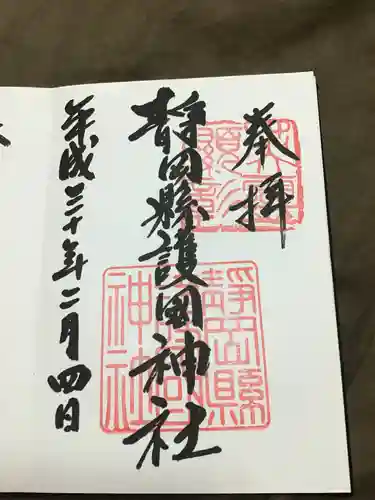 奉拝
靜岡縣護國神社
平成三十年二月四日
靜岡縣
護國
神社